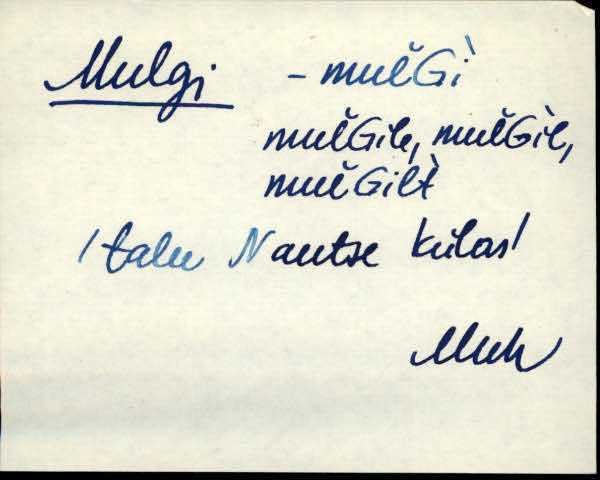 Mulgi – mul̆Gì
mul̆Gile, mul̆Gìl,
mul̆Gilt̀
/ talu Nautse külas /
Muh